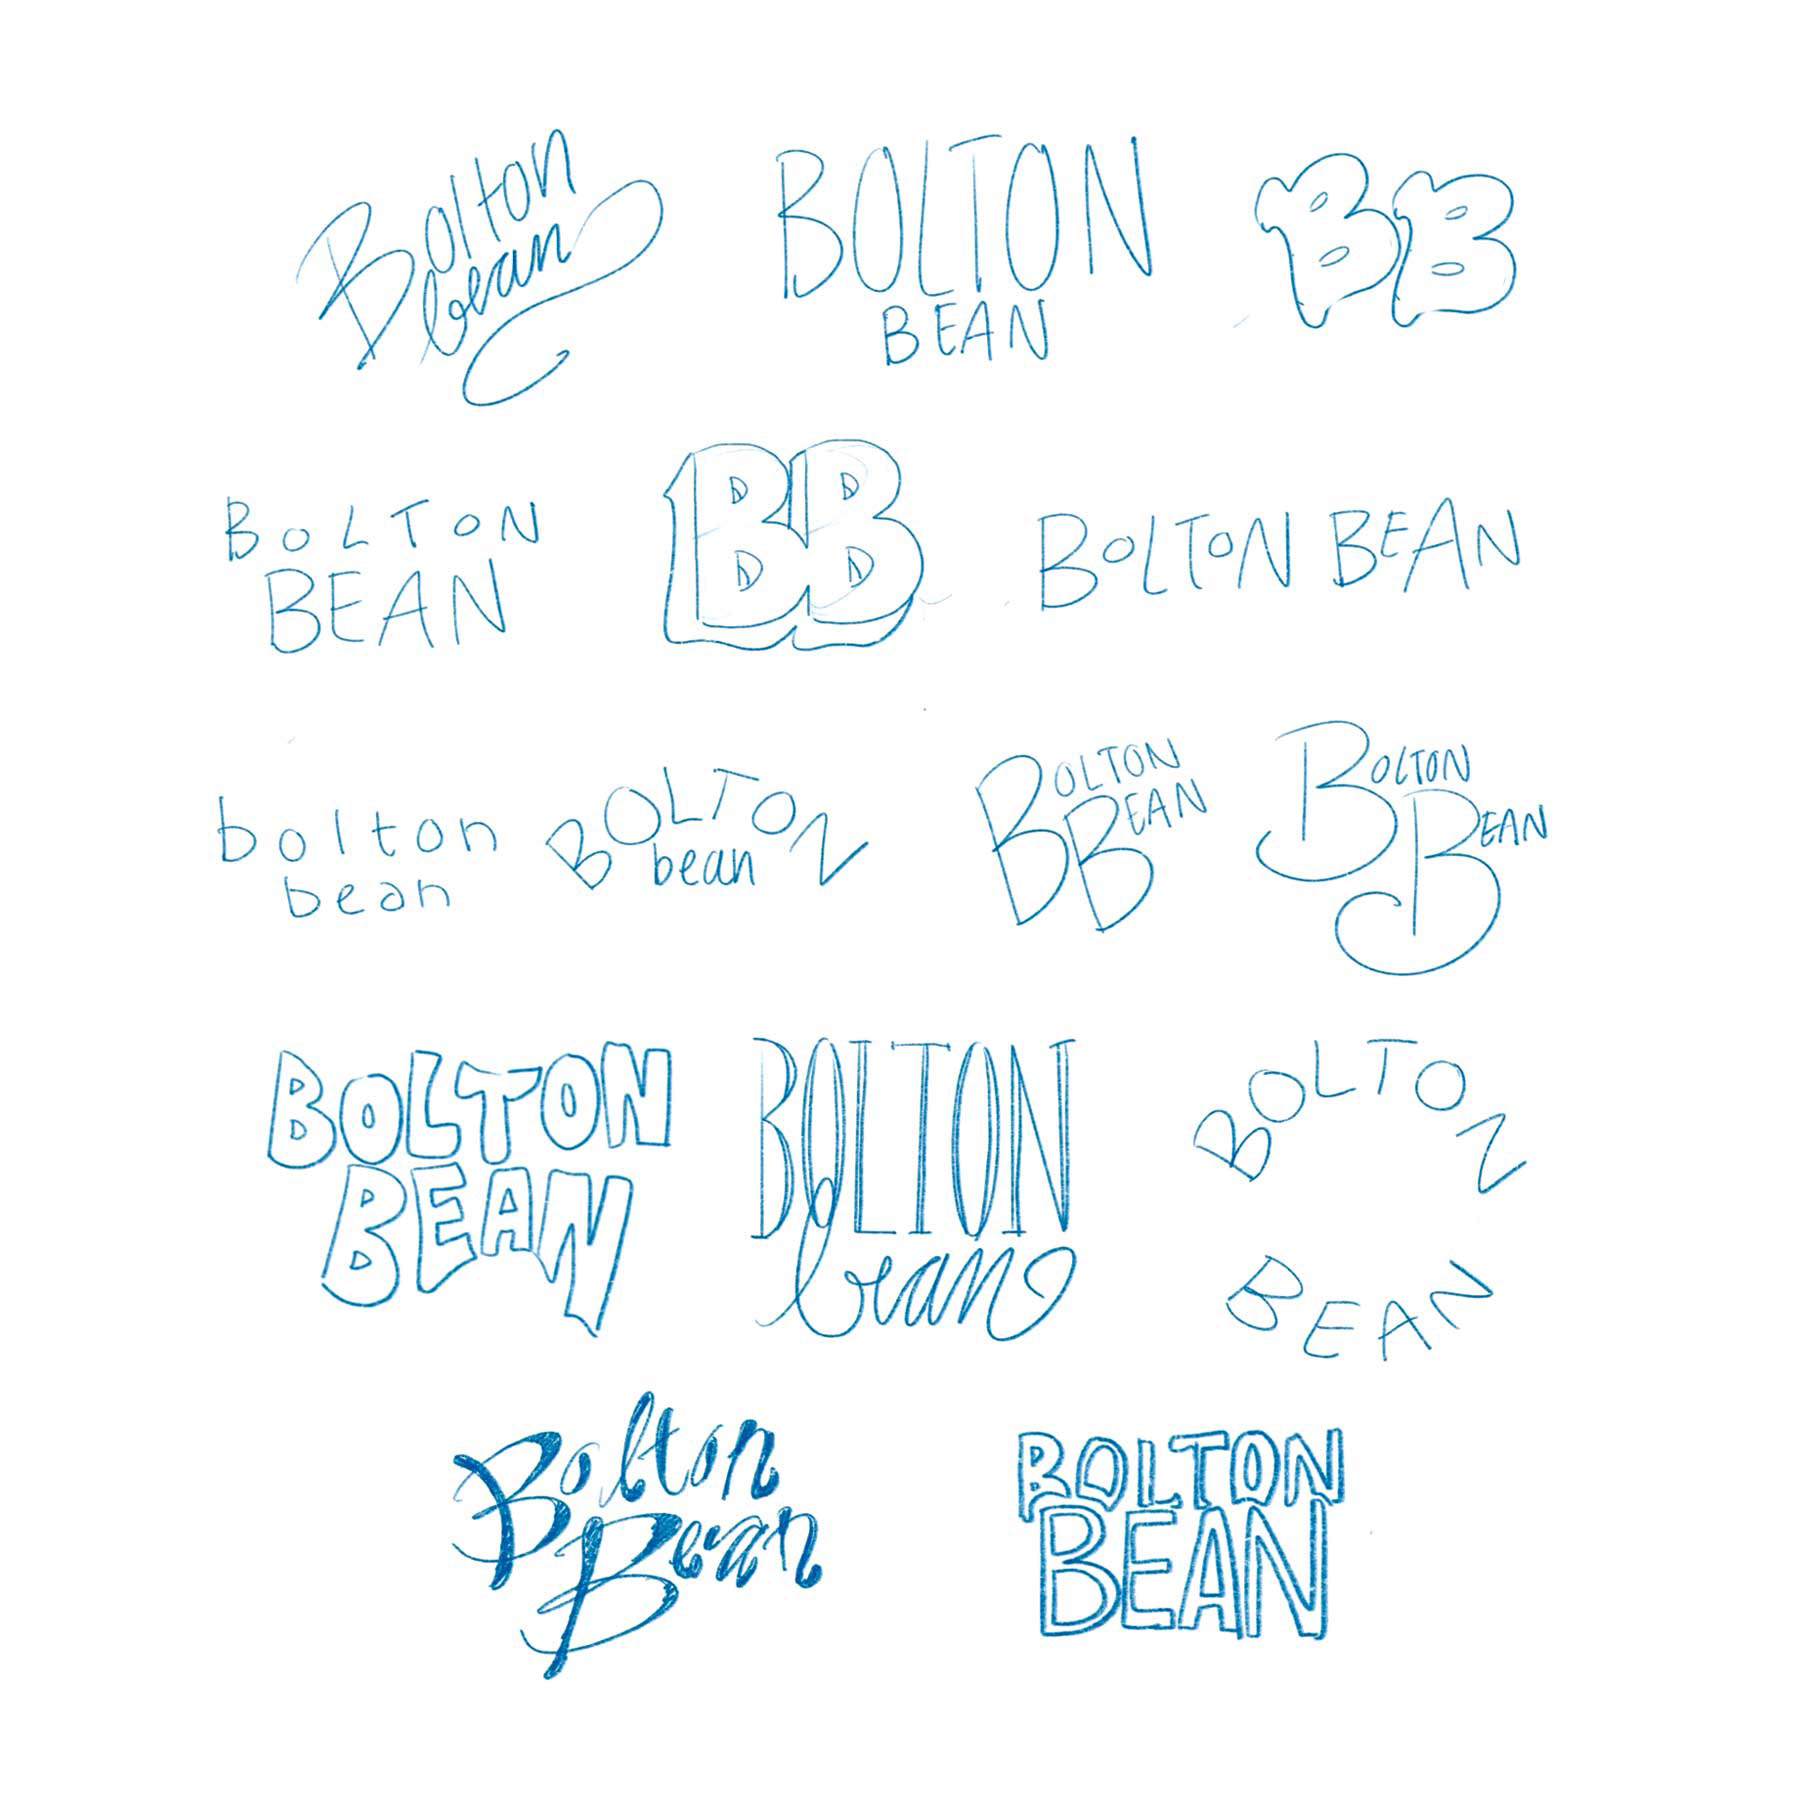 Bolton
bean
BOLTON
BEAN
BB
BOLTON
BEAN
BB
BOLTON BEAN
bolton
bean
BOLTON
bean
BOLTON
BEAN
BOLTON
BEAN
BOLTON
BEAN
BOLTON
bean
BOLTON
BEAN
Bolton
Bean
BOLTON
BEAN